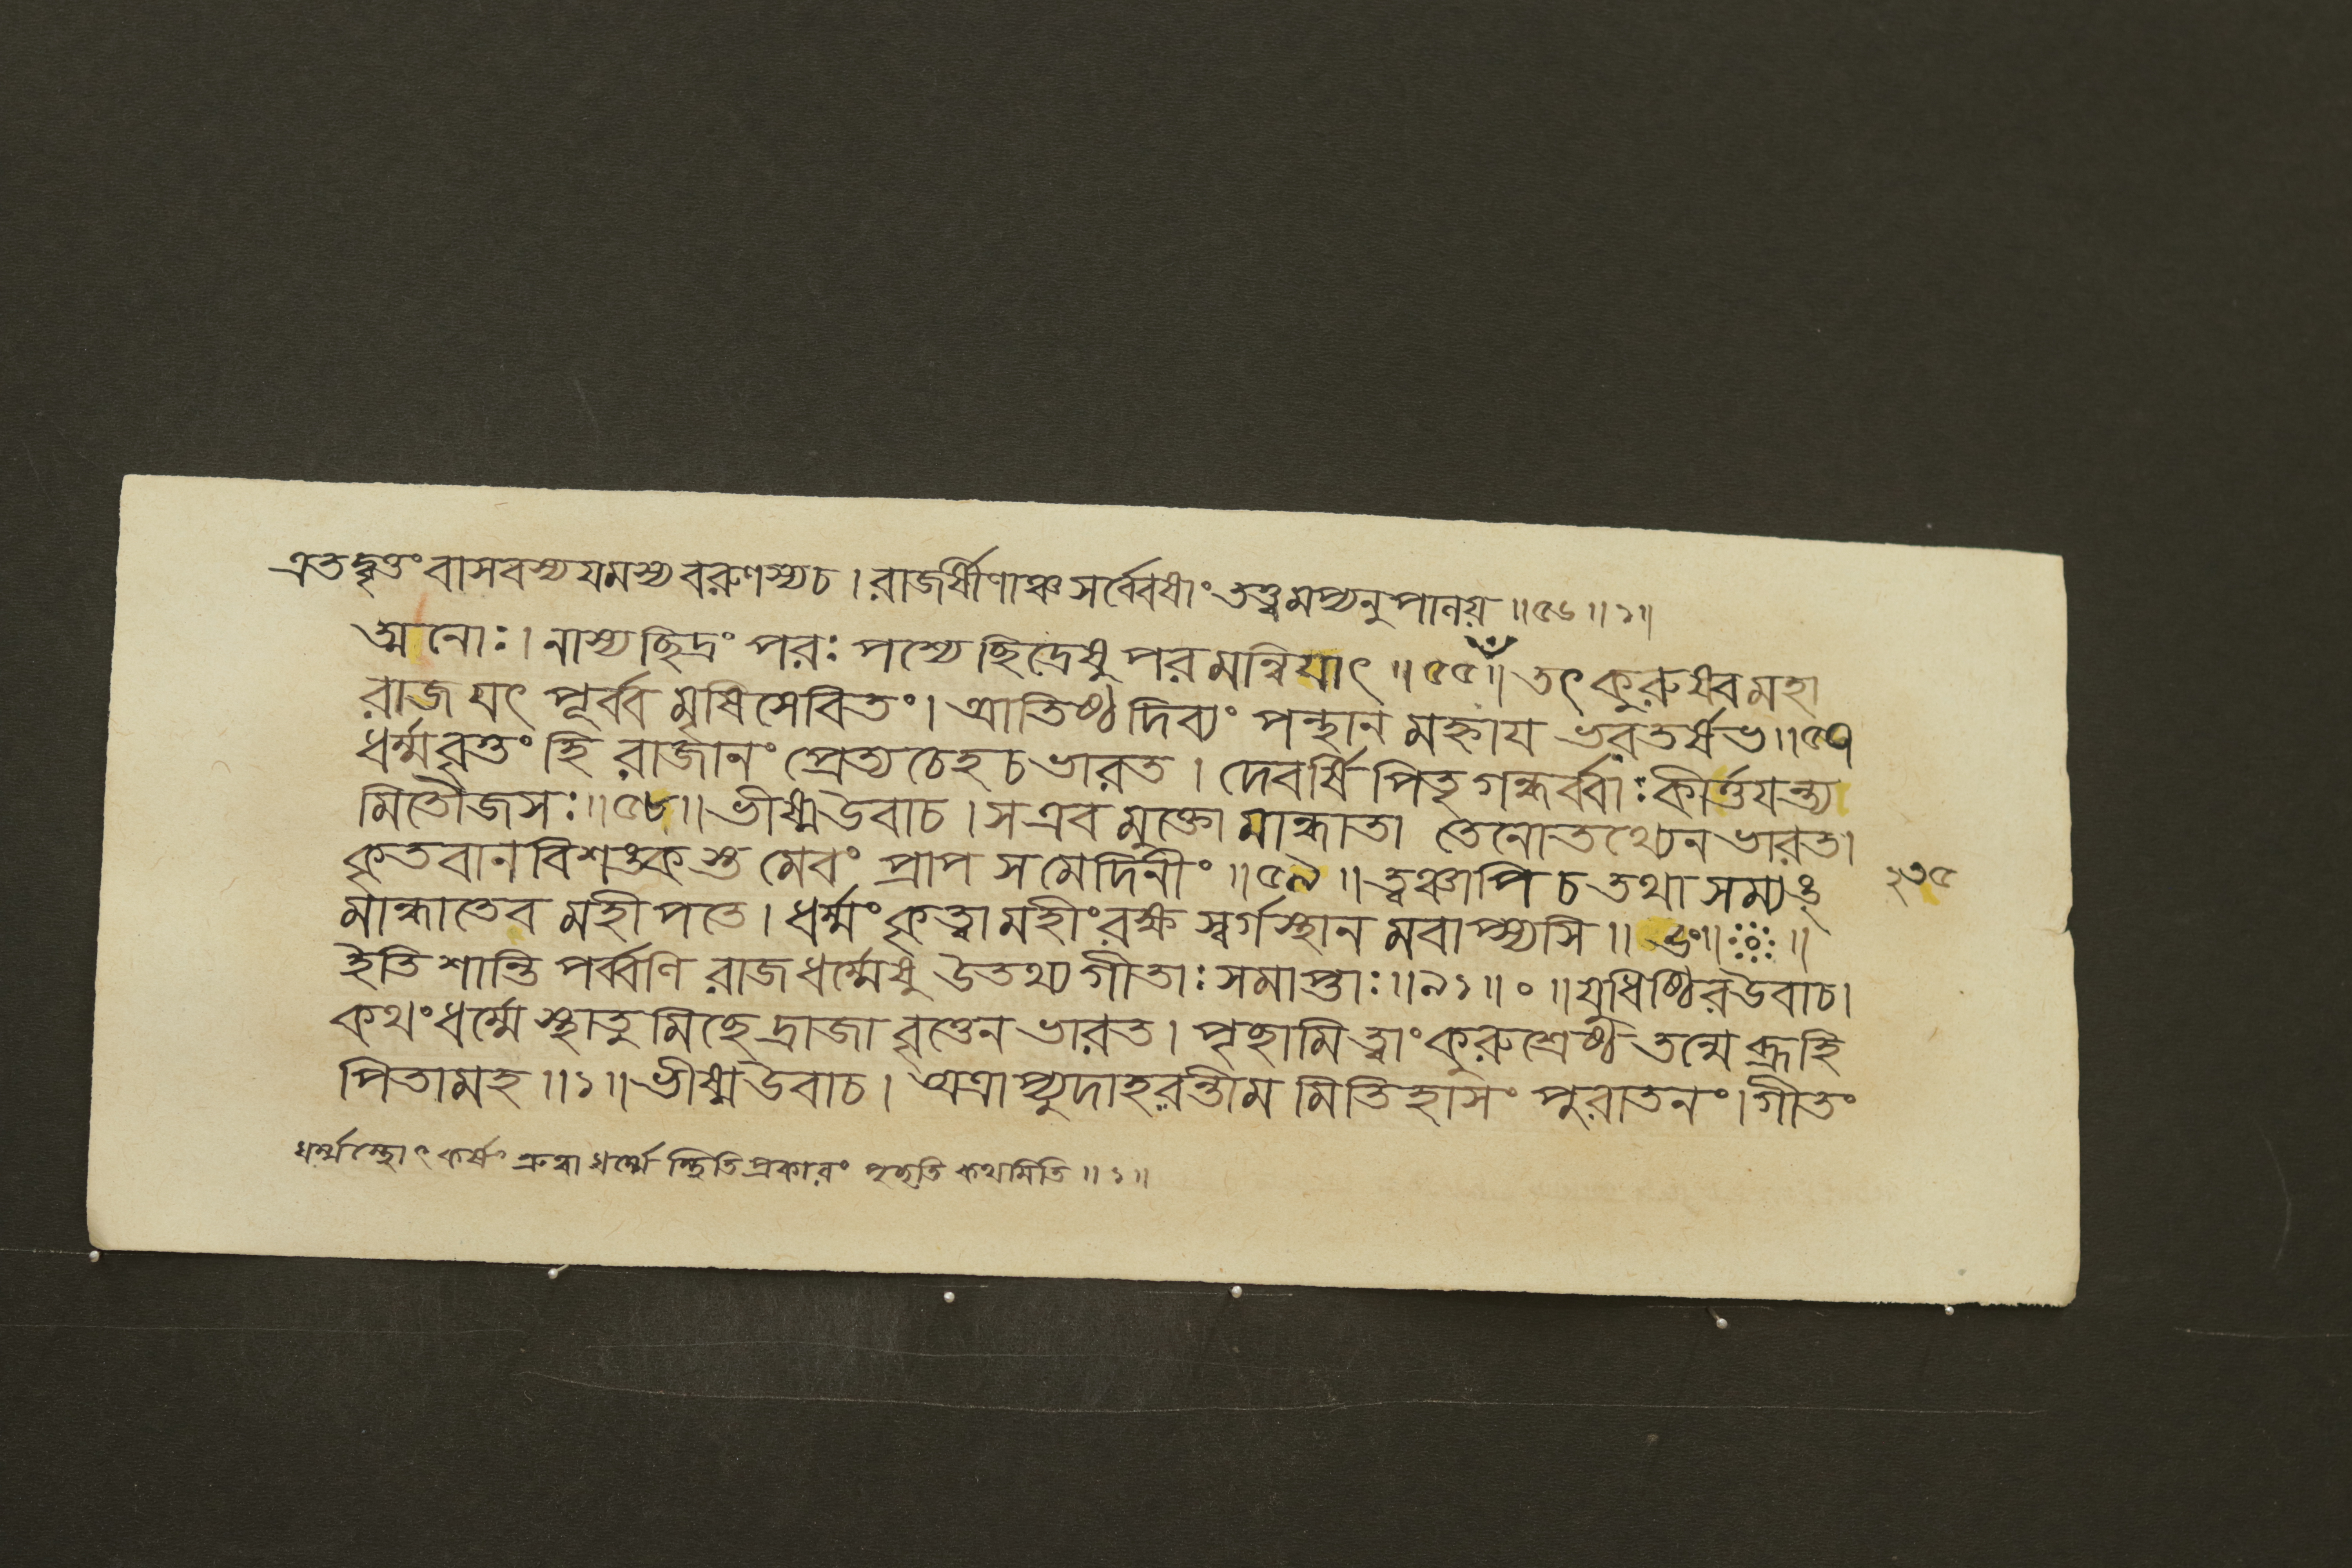 এতদ্বৃত্তং বাসবস্য যমস্য বরুণস্য চ । রাজর্ষীণাঞ্চ সর্ব্বেষাং তত্ত্বমপ্যনুপানয় ॥৫৬॥১॥
ত্মনোঃ। নাস্য ছিদ্রং পরঃ পশ্যে ছিদ্রেষু পরমন্বিয়াৎ ॥৫৫॥ তৎ কুরুষ্ব মহা
রাজ যৎ পূর্ব্ব মৃষিসেবিতং। আতিষ্ঠ দিব্যং পন্থান মহ্নায ভরতর্ষভ॥৫৭
ধর্ম্মবৃত্তং হি রাজানং প্রেত্য চেহ চ ভারত । দেবর্ষি পিতৃ গন্ধর্ব্বাঃ কীর্ত্তযন্ত্য
মিতৌজসঃ॥৫৮॥ ভীষ্ম উবাচ । স এব মুক্তো মান্ধাতা তেনোতথ্যেন ভারত।
কৃতবানবিশঙ্কশ্তু মেবং প্রাপ স মেদিনীং ॥৫৯॥ ত্বঞ্চাপি চ তথা সম্যঙ্
মান্ধাতেব মহীপতে । ধর্ম্মং কৃত্বা মহীং রক্ষ স্বর্গস্থান মবাপ্স্যসি ॥
২৩৫
ইতি শান্তি পর্ব্বণি রাজধর্ম্মেষু উতথ্য গীতাঃ সমাপ্তাঃ॥৯১॥ ॰ ॥ যুধিষ্ঠির উবাচ।
কথং ধর্ম্মে স্থাতু মিছে দ্রাজা বৃত্তেন ভারত। পৃছামি ত্বাং কুরুশ্রেষ্ঠ তন্মে ব্রূহি
পিতামহ ॥১॥ ভীষ্ম উবাচ। অত্রাপ্যুদাহরন্তীম মিতিহাসং পুরাতনং। গীতং
ধর্ম্মস্যোৎকর্ষং শ্রুত্বা ধর্ম্মে স্থিতি প্রকারং পৃছতি কথমিতি ॥১॥